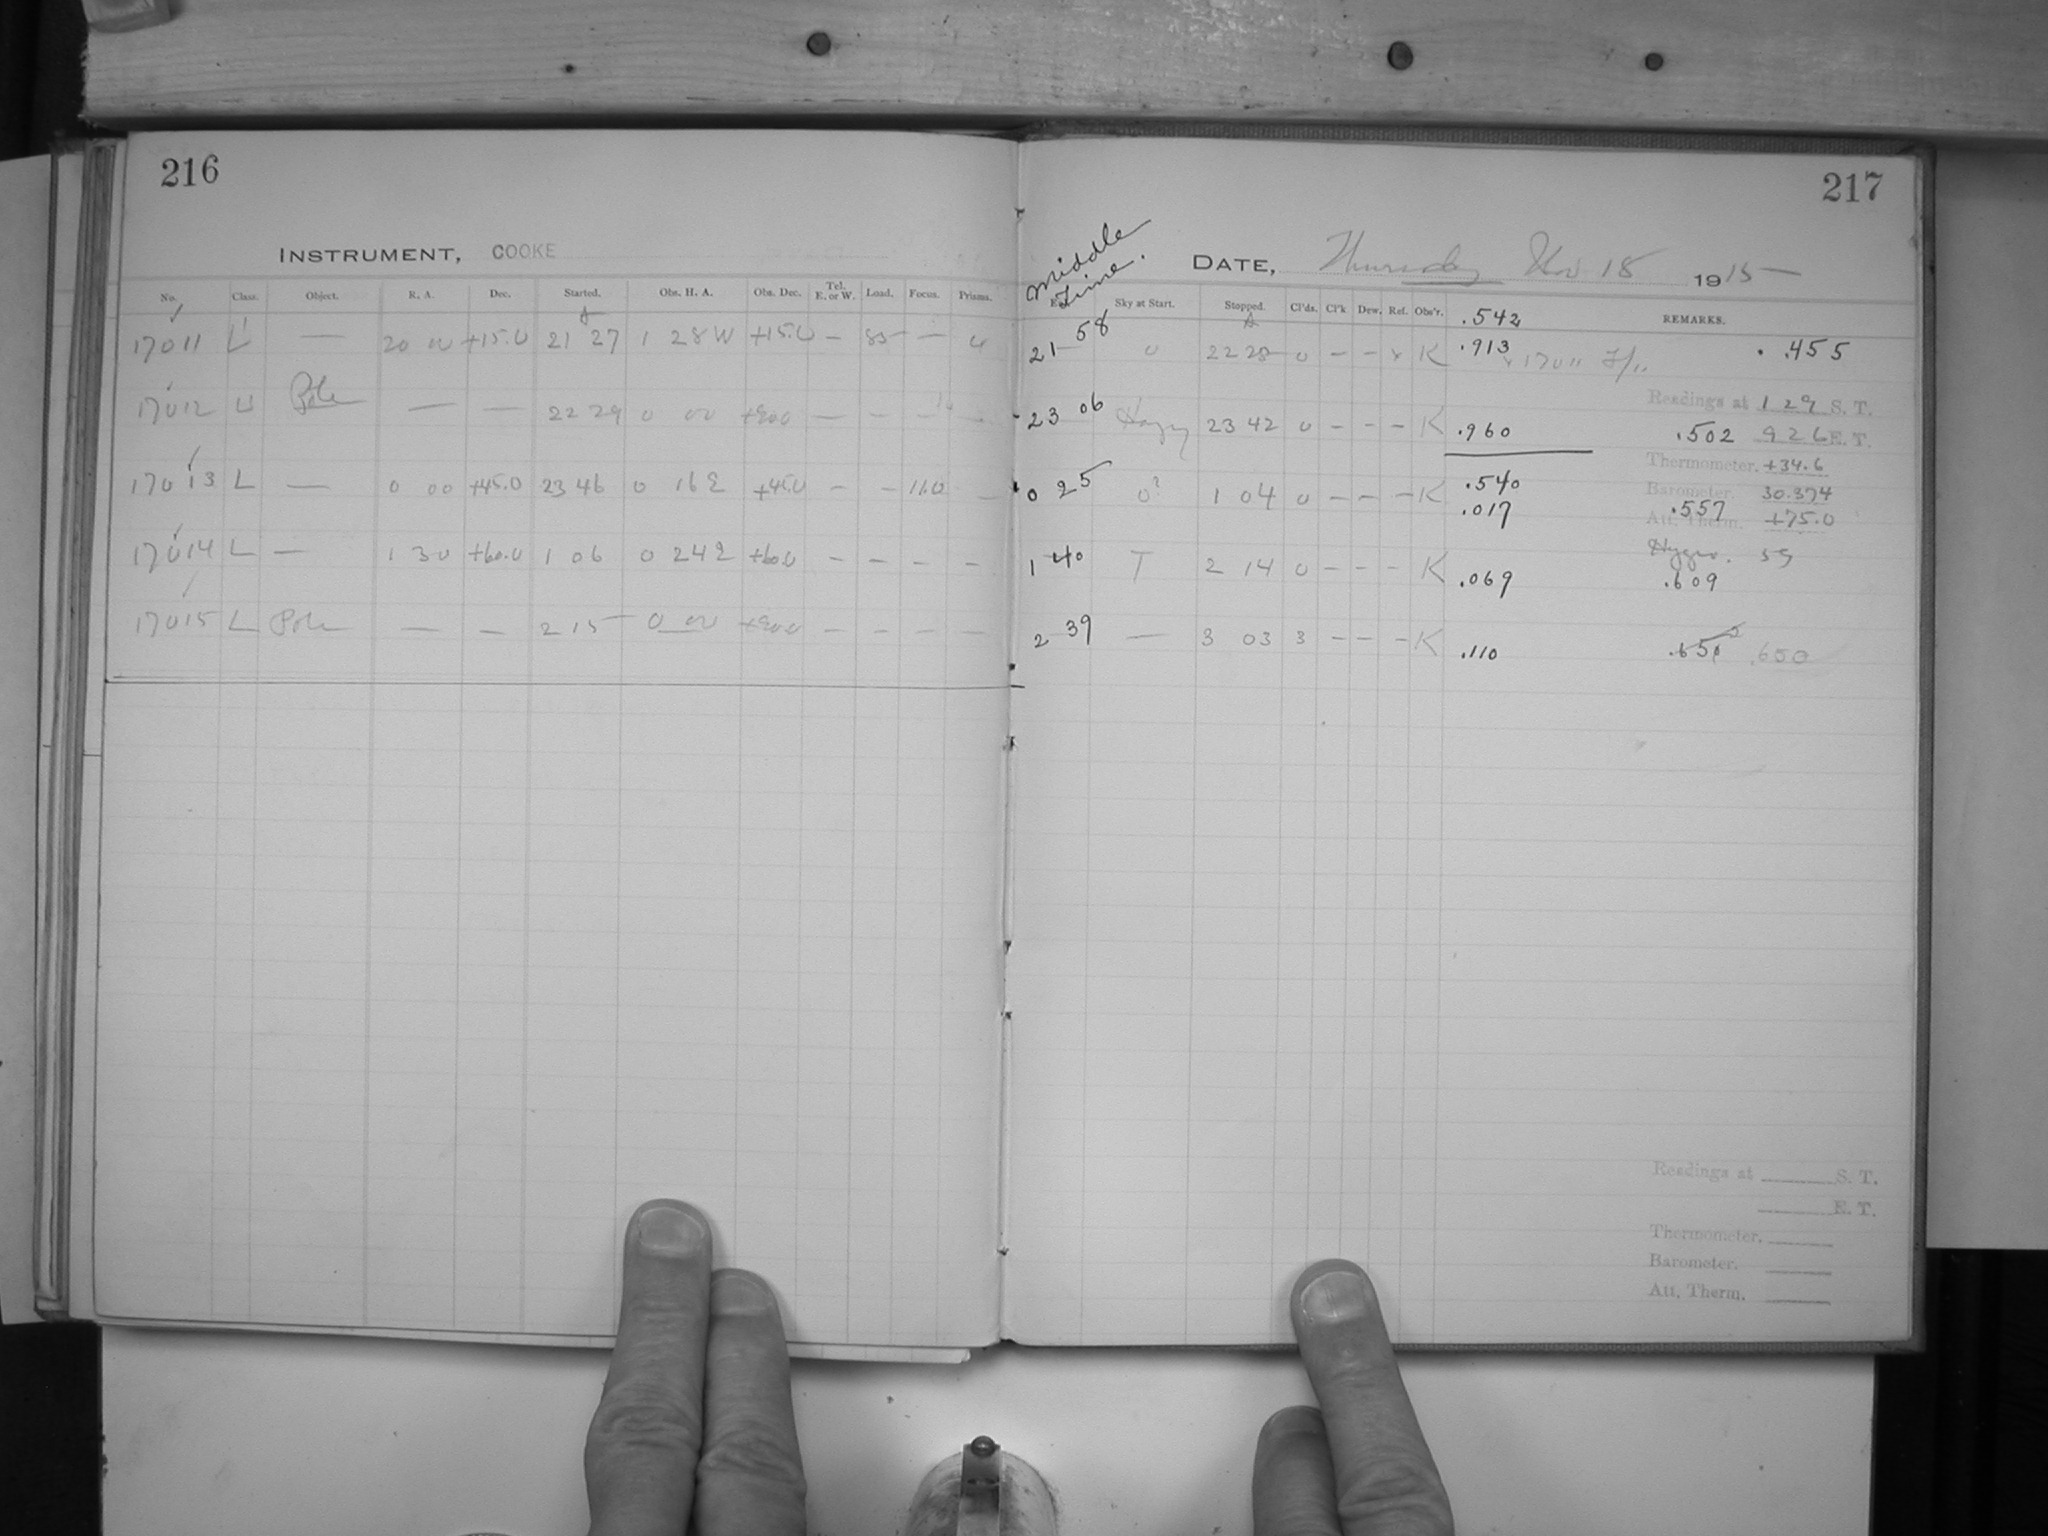 216
INSTRUMENT, COOKE
No. Class. Object. R. A. Dec. Started. Obs. H. A. Obs. Dec. Tel. E. or W. Load. Focus. Prisms.
17011 L — 20 00 +15.0 21 27 1 28 W +15.0 — 85 — 4
17012 Pole — — 22 29 0 00 +90.0 — — —
17013 L — 0 00 +45.0 23 46 0 16 E +45.0 — — 11.0 —
17014 L — 1 30 +60.0 1 06 0 24 E +60.0 — — — —
17015 L Pole — — 2 15 0 00 +90.0 — — — —
217
Middle Time.
DATE, Thursday Nov 18 1915
Sky at Start. Stopped. Cl'ds. Cl'k Dew. Ref. Obs'r. REMARKS.
.542
21 58 0 22 28 0 — — x K .913 x 17011 .455
Readings at 1 29 S. T.
23 06 Hazy 23 42 0 — — — K .960 .502 9 26 E. T.
Thermometer. +34.6
0 25 0? 1 04 0 — — — K .540
Barometer. 30.374
.017 .557
Att. Therm. +75.0
Hygro. 59
1 40 T 2 14 0 — — — K .069 .609
2 39 — 3 03 3 — — — K .110 .650
Readings at S. T.
E. T.
Thermometer.
Barometer.
Att. Therm.